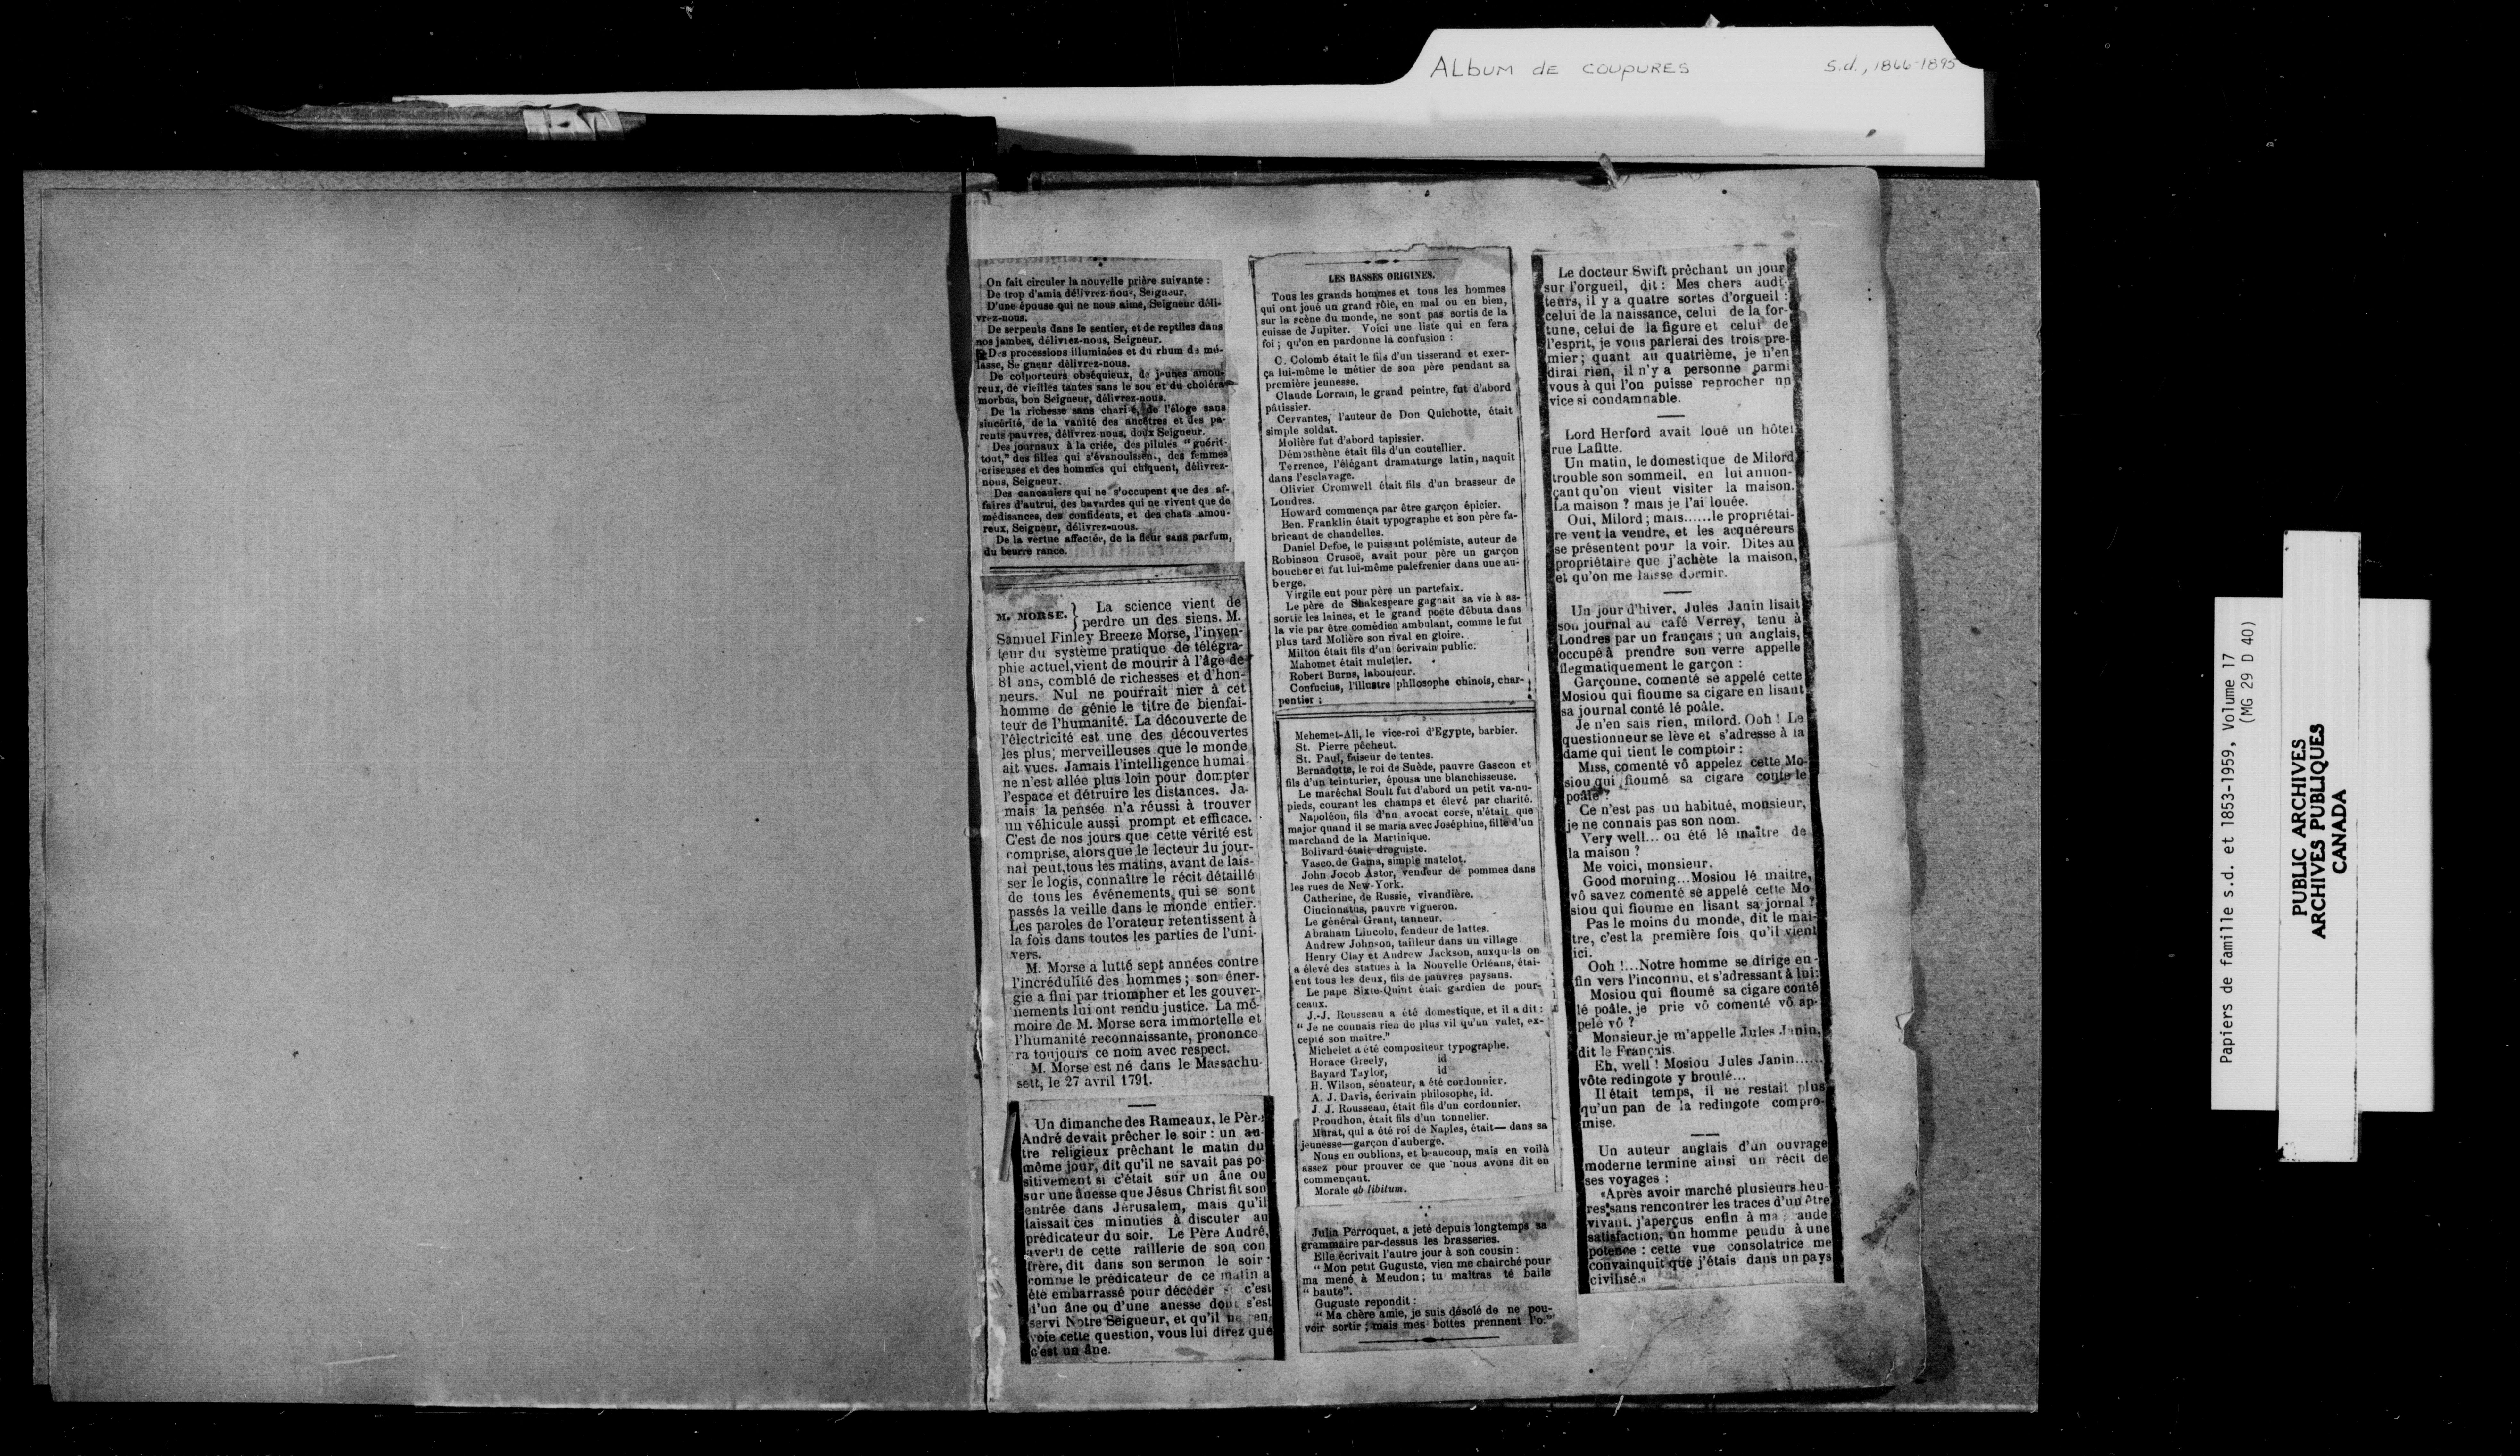 ALbum de coupures
s.d., 1866-1895
On fait circuler la nouvelle prière suivante :
De trop d'amis délivrez-nous, Seigneur.
D'une épouse qui ne nous aime, Seigneur déli-
vrez-nous.
De serpents dans le sentier, et de reptiles dans
nos jambes, délivrez-nous, Seigneur.
Des processions illuminées et du rhum de mé-
lasse, Se gneur délivrez-nous.
De colporteurs obséquieux, de jeunes amou-
reux, de vieilles tantes sans le sou et du choléra
morbus, bon Seigneur, délivrez-nous.
De la richesse sans charité, de l'éloge sans
sincérité, de la vanité des ancêtres et des pa-
rents pauvres, délivrez-nous, doux Seigneur.
Des journaux à la criée, des pilules "guérit-
tout," des filles qui s'évanouissent, des femmes
criseuses et des hommes qui chiquent, délivrez-
nous, Seigneur.
Des cancaniers qui ne s'occupent que des af-
faires d'autrui, des bavardes qui ne vivent que de
médisances, des confidents, et des chats amou-
reux, Seigneur, délivrez-nous.
De la vertue affectée, de la fleur sans parfum,
du beurre rance.
M. MORSE. } La science vient de
perdre un des siens. M.
Samuel Finley Breeze Morse, l'inven-
teur du système pratique de télégra-
phie actuel, vient de mourir à l'âge de
81 ans, comblé de richesses et d'hon-
neurs. Nul ne pourrait nier à cet
homme de génie le titre de bienfai-
teur de l'humanité. La découverte de
l'électricité est une des découvertes
les plus, merveilleuses que le monde
ait vues. Jamais l'intelligence humai-
ne n'est allée plus loin pour dompter
l'espace et détruire les distances. Ja-
mais la pensée n'a réussi à trouver
un véhicule aussi prompt et efficace.
C'est de nos jours que cette vérité est
comprise, alors que le lecteur du jour-
nal peut, tous les matins, avant de lais-
ser le logis, connaître le récit détaillé
de tous les événements, qui se sont
passés la veille dans le monde entier.
Les paroles de l'orateur retentissent à
la fois dans toutes les parties de l'uni-
vers.
M. Morse a lutté sept années contre
l'incrédulité des hommes ; son éner-
gie a fini par triompher et les gouver-
nements lui ont rendu justice. La mé-
moire de M. Morse sera immortelle et
l'humanité reconnaissante, prononce
ra toujours ce nom avec respect.
M. Morse est né dans le Massachu-
sett, le 27 avril 1791.
Un dimanche des Rameaux, le Père
André devait prêcher le soir : un au-
tre religieux prêchant le matin du
même jour, dit qu'il ne savait pas po-
sitivement si c'était sur un âne ou
sur une ânesse que Jésus Christ fit son
entrée dans Jérusalem, mais qu'il
laissait ces minuties à discuter au
prédicateur du soir. Le Père André,
averti de cette raillerie de son con
frère, dit dans son sermon le soir :
comme le prédicateur de ce matin a
été embarrassé pour décéder si c'est
d'un âne ou d'une anesse dont s'est
servi Notre Seigneur, et qu'il me ren-
voie cette question, vous lui direz que
c'est un âne.
LES BASSES ORIGINES.
Tous les grands hommes et tous les hommes
qui ont joué un grand rôle, en mal ou en bien,
sur la scène du monde, ne sont pas sortis de la
cuisse de Jupiter. Voici une liste qui en fera
foi ; qu'on en pardonne la confusion :
C. Colomb était le fils d'un tisserand et exer-
ça lui-même le métier de son père pendant sa
première jeunesse.
Claude Lorrain, le grand peintre, fut d'abord
pâtissier.
Cervantes, l'auteur de Don Quichotte, était
simple soldat.
Molière fut d'abord tapissier.
Démosthène était fils d'un coutellier.
Terrence, l'élégant dramaturge latin, naquit
dans l'esclavage.
Olivier Cromwell était fils d'un brasseur de
Londres.
Howard commença par être garçon épicier.
Ben. Franklin était typographe et son père fa-
bricant de chandelles.
Daniel Defoe, le puissant polémiste, auteur de
Robinson Crusoë, avait pour père un garçon
boucher et fut lui-même palefrenier dans une au-
berge.
Virgile eut pour père un portefaix.
Le père de Shakespeare gagnait sa vie à as-
sortir les laines, et le grand poëte débuta dans
la vie par être comédien ambulant, comme le fut
plus tard Molière son rival en gloire.
Milton était fils d'un écrivain public.
Mahomet était muletier.
Robert Burns, laboureur.
Confucius, l'illustre philosophe chinois, char-
pentier ;
Mehemet-Ali, le vice-roi d'Egypte, barbier.
St. Pierre pêcheut.
St. Paul, faiseur de tentes.
Bernadotte, le roi de Suède, pauvre Gascon et
fils d'un teinturier, épousa une blanchisseuse.
Le maréchal Soult fut d'abord un petit va-nu-
pieds, courant les champs et élevé par charité.
Napoléon, fils d'un avocat corse, n'était que
major quand il se maria avec Joséphine, fille d'un
marchand de la Martinique.
Bolivard était droguiste.
Vasco de Gama, simple matelot.
John Jocob Astor, vendeur de pommes dans
les rues de New-York.
Catherine, de Russie, vivandière.
Cincinnatus, pauvre vigneron.
Le général Grant, tanneur.
Abraham Lincoln, fendeur de lattes.
Andrew Johnson, tailleur dans un village
Henry Clay et Andrew Jackson, auxquels on
a élevé des statues à la Nouvelle Orléans, étai-
ent tous les deux, fils de pauvres paysans.
Le pape Sixte-Quint était gardien de pour-
ceaux.
J.-J. Rousseau a été domestique, et il a dit :
"Je ne connais rien de plus vil qu'un valet, ex-
cepté son maître."
Michelet a été compositeur typographe.
Horace Greely, id
Bayard Taylor, id
H. Wilson, sénateur, a été cordonnier.
A. J. Davis, écrivain philosophe, id.
J. J. Rousseau, était fils d'un cordonnier.
Proudhon, était fils d'un tonnelier.
Murat, qui a été roi de Naples, était— dans sa
jeunesse—garçon d'auberge.
Nous en oublions, et beaucoup, mais en voilà
assez pour prouver ce que nous avons dit en
commençant.
Morale ab libitum.
Julia Perroquet, a jeté depuis longtemps sa
grammaire par-dessus les brasseries.
Elle écrivait l'autre jour à son cousin :
"Mon petit Guguste, vien me chairché pour
ma mené à Meudon ; tu maîtras té baile
"baute".
Guguste repondit :
"Ma chère amie, je suis désolé de ne pou-
voir sortir ; mais mes bottes prennent l'o."
Le docteur Swift prêchant un jour
sur l'orgueil, dit : Mes chers audi-
teurs, il y a quatre sortes d'orgueil :
celui de la naissance, celui de la for-
tune, celui de la figure et celui de
l'esprit, je vous parlerai des trois pre-
mier ; quant au quatrième, je n'en
dirai rien, il n'y a personne parmi
vous à qui l'on puisse reprocher un
vice si condamnable.
Lord Herford avait loué un hôtel
rue Lafitte.
Un matin, le domestique de Milord
trouble son sommeil, en lui annon-
çant qu'on vient visiter la maison.
La maison ? mais je l'ai louée.
Oui, Milord ; mais......le propriétai-
re veut la vendre, et les acquéreurs
se présentent pour la voir. Dites au
propriétaire que j'achète la maison,
et qu'on me laisse dormir.
Un jour d'hiver, Jules Janin lisait
son journal au café Verrey, tenu à
Londres par un français ; un anglais,
occupé à prendre son verre appelle
flegmatiquement le garçon :
Garçoune, comenté se appelé cette
Mosiou qui fioume sa cigare en lisant
sa journal conté lé poâle.
Je n'en sais rien, milord. Ooh ! Le
questionneur se lève et s'adresse à la
dame qui tient le comptoir :
Miss, comenté vô appelez cette Mo-
siou qui fioumé sa cigare conte le
poâle ?
Ce n'est pas un habitué, monsieur,
je ne connais pas son nom.
Very well... ou été lé maître de
la maison ?
Me voici, monsieur.
Good morning...Mosiou lé maitre,
vô savez comenté se appelé cette Mo
siou qui fioume en lisant sa jornal ?
Pas le moins du monde, dit le mai-
tre, c'est la première fois qu'il vient
ici.
Ooh !...Notre homme se dirige en-
fin vers l'inconnu, et s'adressant à lui:
Mosiou qui fioumé sa cigare conté
lé poâle, je prie vô comenté vô ap-
pelé vô ?
Monsieur, je m'appelle Jules Janin,
dit le Français.
Eh, well ! Mosiou Jules Janin......
vôte redingote y broulé...
Il était temps, il ne restait plus
qu'un pan de la redingote compro-
mise.
Un auteur anglais d'un ouvrage
moderne termine ainsi un récit de
ses voyages :
«Après avoir marché plusieurs heu-
res sans rencontrer les traces d'un être
vivant, j'aperçus enfin à ma ande
satisfaction, un homme pendu à une
potence : cette vue consolatrice me
convainquit que j'étais dans un pays
civilisé.»
Papiers de famille s.d. et 1853-1959, Volume 17
(MG 29 D 40)
PUBLIC ARCHIVES
ARCHIVES PUBLIQUES
CANADA